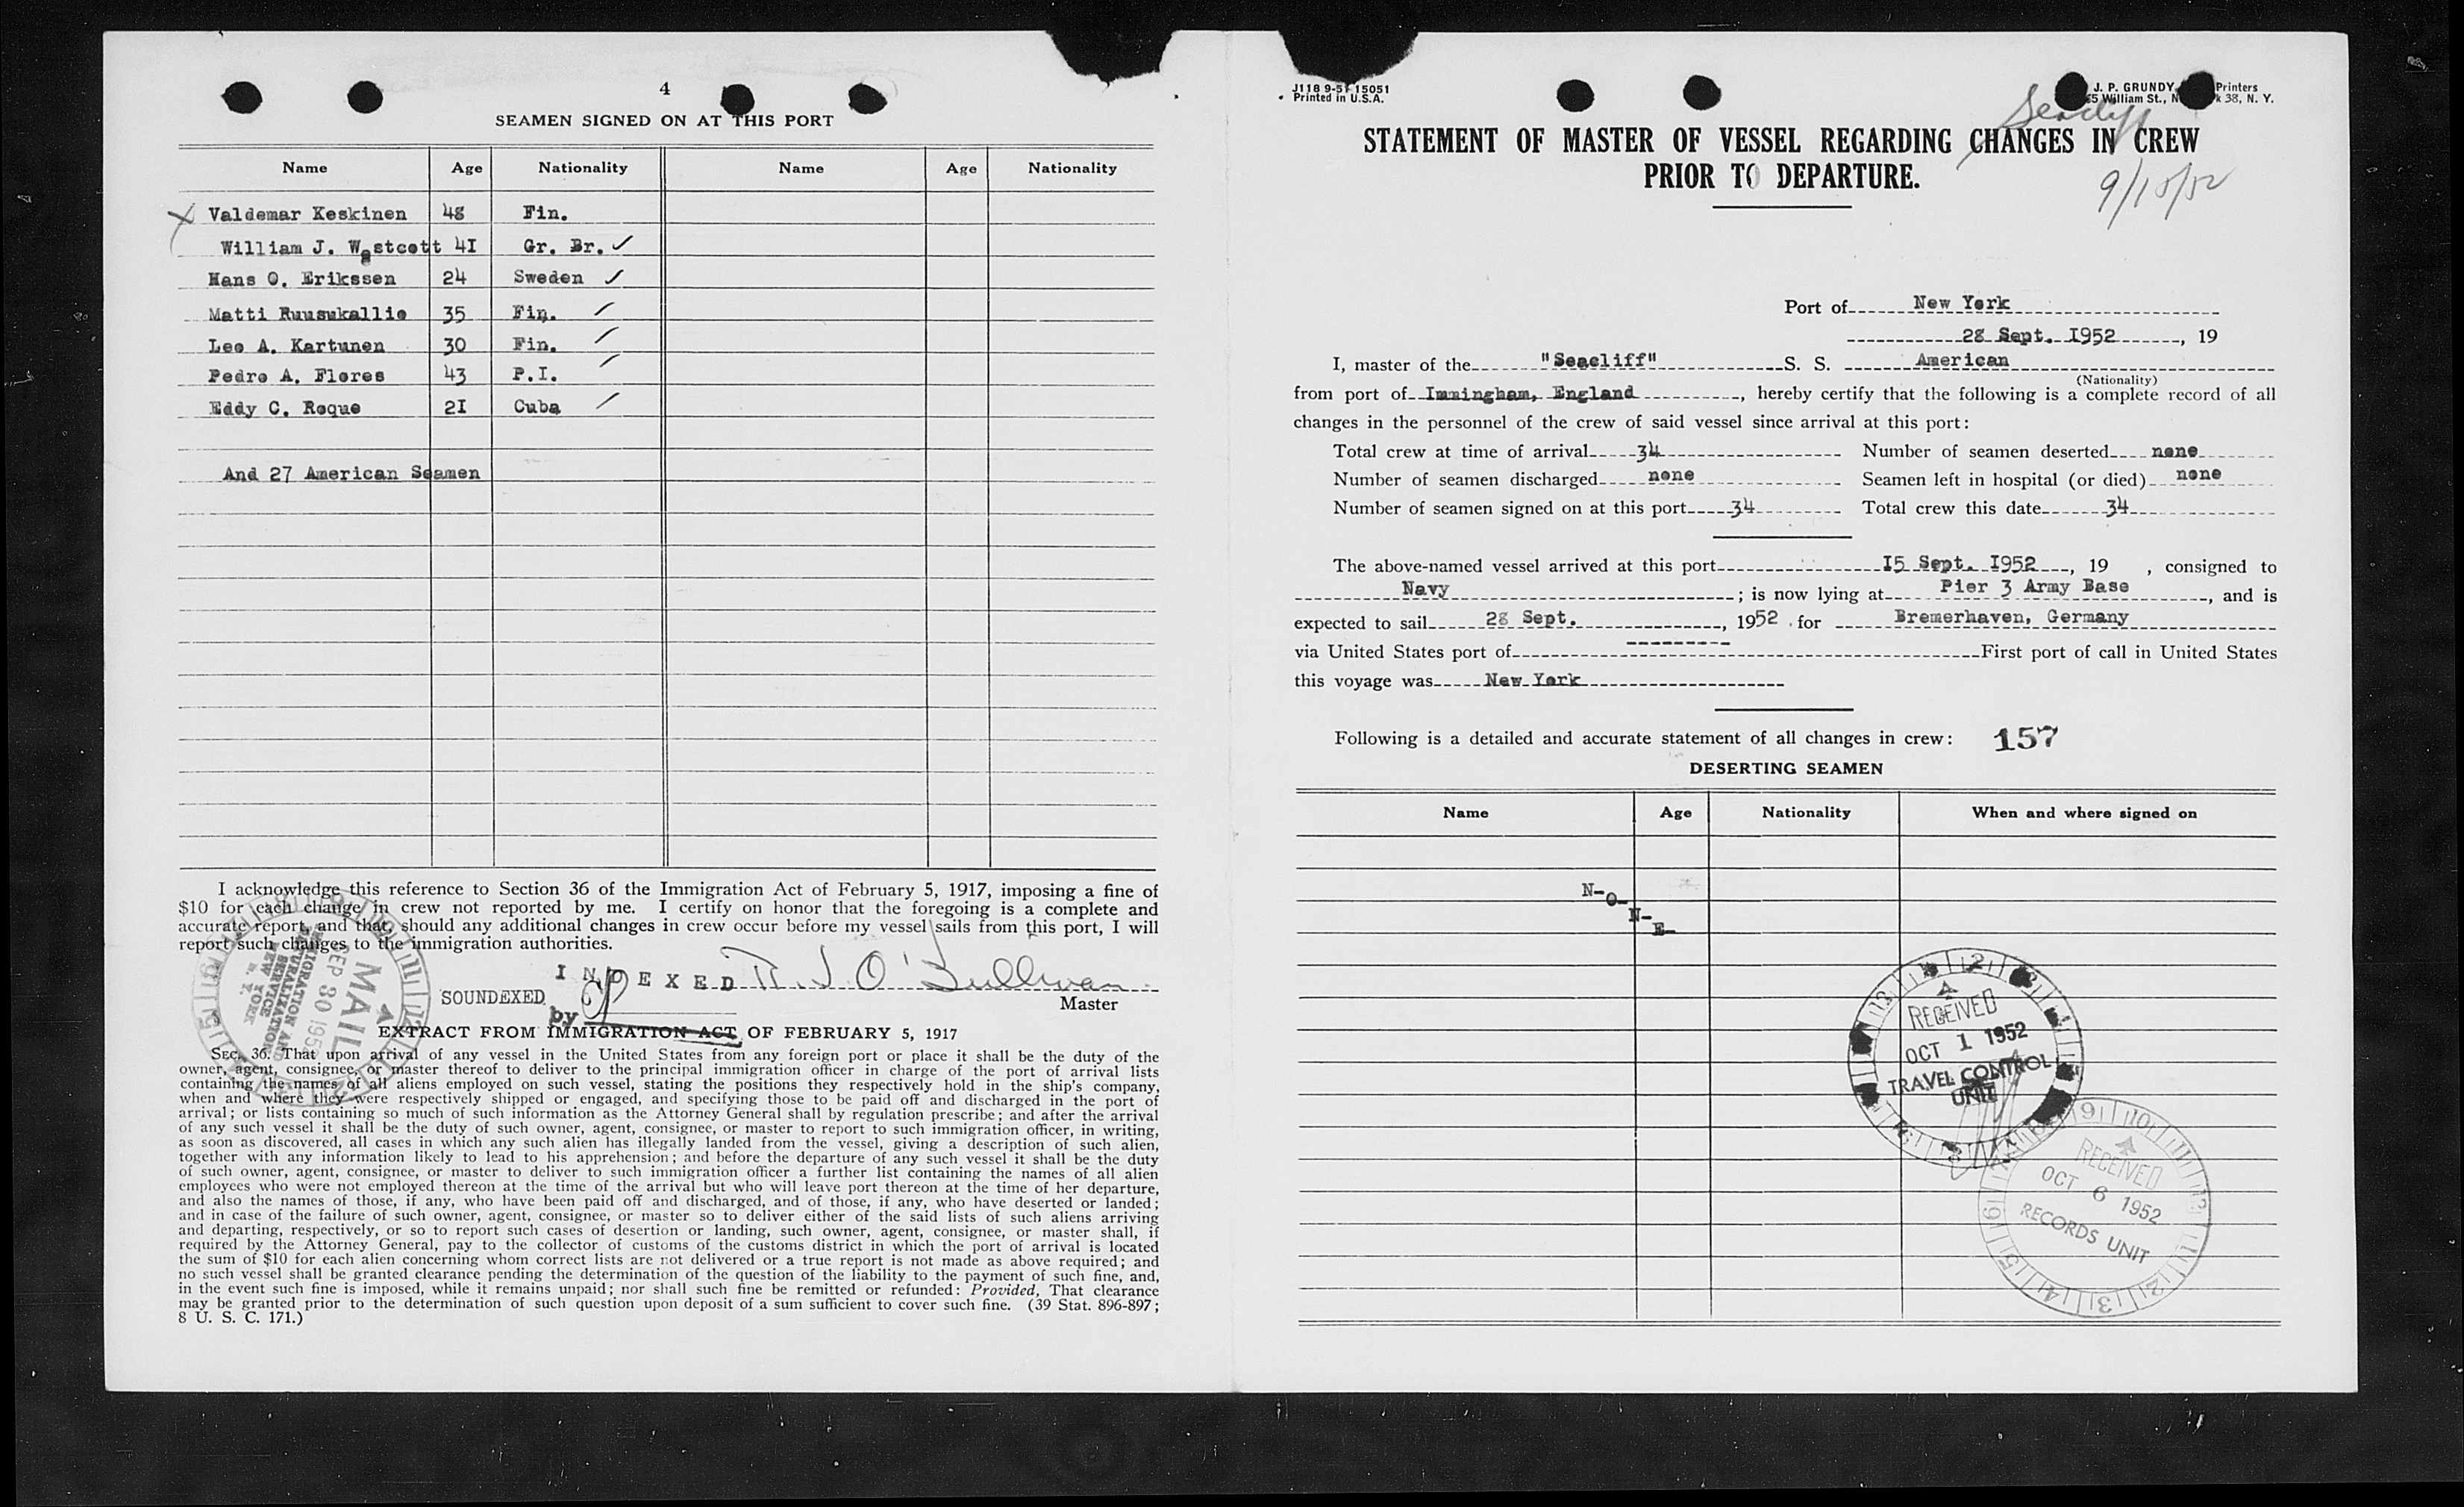 4
SEAMEN SIGNED ON AT THIS PORT
Name Age Nationality Name Age Nationality
Valdemar Keskinen 48 Fin.
William J. Westcott 41 Gr. Br. ✓
Hans O. Erikssen 24 Sweden ✓
Matti Ruusukallio 35 Fin. ✓
Leo A. Kartunen 30 Fin. ✓
Pedro A. Flores 43 P.I. ✓
Eddy C. Roque 21 Cuba ✓
And 27 American Seamen
I acknowledge this reference to Section 36 of the Immigration Act of February 5, 1917, imposing a fine of
$10 for each change in crew not reported by me. I certify on honor that the foregoing is a complete and
accurate report, and that, should any additional changes in crew occur before my vessel sails from this port, I will
report such changes to the immigration authorities.
MAIL
SEP 30 195
IMMIGRATION AND
NATURALIZATION
SERVICE
NEW YORK
N. Y.
INDEXED
O'Sullivan
SOUNDEXED
Master
by
EXTRACT FROM IMMIGRATION ACT OF FEBRUARY 5, 1917
SEC. 36. That upon arrival of any vessel in the United States from any foreign port or place it shall be the duty of the
owner, agent, consignee, or master thereof to deliver to the principal immigration officer in charge of the port of arrival lists
containing the names of all aliens employed on such vessel, stating the positions they respectively hold in the ship's company,
when and where they were respectively shipped or engaged, and specifying those to be paid off and discharged in the port of
arrival; or lists containing so much of such information as the Attorney General shall by regulation prescribe; and after the arrival
of any such vessel it shall be the duty of such owner, agent, consignee, or master to report to such immigration officer, in writing,
as soon as discovered, all cases in which any such alien has illegally landed from the vessel, giving a description of such alien,
together with any information likely to lead to his apprehension; and before the departure of any such vessel it shall be the duty
of such owner, agent, consignee, or master to deliver to such immigration officer a further list containing the names of all alien
employees who were not employed thereon at the time of the arrival but who will leave port thereon at the time of her departure,
and also the names of those, if any, who have been paid off and discharged, and of those, if any, who have deserted or landed;
and in case of the failure of such owner, agent, consignee, or master so to deliver either of the said lists of such aliens arriving
and departing, respectively, or so to report such cases of desertion or landing, such owner, agent, consignee, or master shall, if
required by the Attorney General, pay to the collector of customs of the customs district in which the port of arrival is located
the sum of $10 for each alien concerning whom correct lists are not delivered or a true report is not made as above required; and
no such vessel shall be granted clearance pending the determination of the question of the liability to the payment of such fine, and,
in the event such fine is imposed, while it remains unpaid; nor shall such fine be remitted or refunded: Provided, That clearance
may be granted prior to the determination of such question upon deposit of a sum sufficient to cover such fine. (39 Stat. 896-897;
8 U. S. C. 171.)
J118 9-51 15051
Printed in U.S.A.
J. P. GRUNDY, Printers
William St., N k 38, N. Y.
STATEMENT OF MASTER OF VESSEL REGARDING CHANGES IN CREW
PRIOR TO DEPARTURE.
9/15/52
Port of New York
28 Sept. 1952, 19
I, master of the "Seacliff" S. S. American
(Nationality)
from port of Immingham, England, hereby certify that the following is a complete record of all
changes in the personnel of the crew of said vessel since arrival at this port:
Total crew at time of arrival 34 Number of seamen deserted none
Number of seamen discharged none Seamen left in hospital (or died) none
Number of seamen signed on at this port 34 Total crew this date 34
The above-named vessel arrived at this port 15 Sept. 1952, 19 , consigned to
Navy ; is now lying at Pier 3 Army Base, and is
expected to sail 28 Sept., 1952 for Bremerhaven, Germany
via United States port of --------- First port of call in United States
this voyage was New York
Following is a detailed and accurate statement of all changes in crew: 157
DESERTING SEAMEN
Name Age Nationality When and where signed on
N-O-N-E-
RECEIVED
OCT 1 1952
TRAVEL CONTROL
UNIT
RECEIVED
OCT 6 1952
RECORDS UNIT